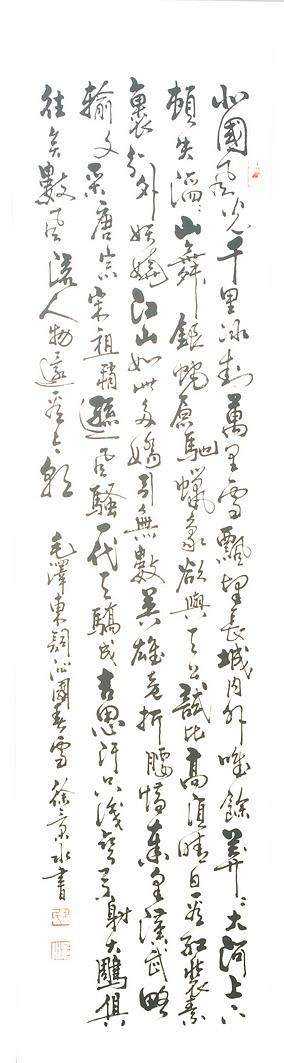 北國風光千里冰封萬里雪飄望長城内外唯餘莽莽大河上下
頓失滔滔山舞銀蛇原馳蠟象欲與天公試比高須晴日看紅裝素
裹分外妖嬈江山如此多嬌引無數英雄竞折腰惜秦皇漢武略
輸文采唐宗宋祖稍遜風騷一代天驕成吉思汗只識彎弓射大鵰俱
往矣數風流人物還看今朝 毛澤東詞沁園春雪 徐書